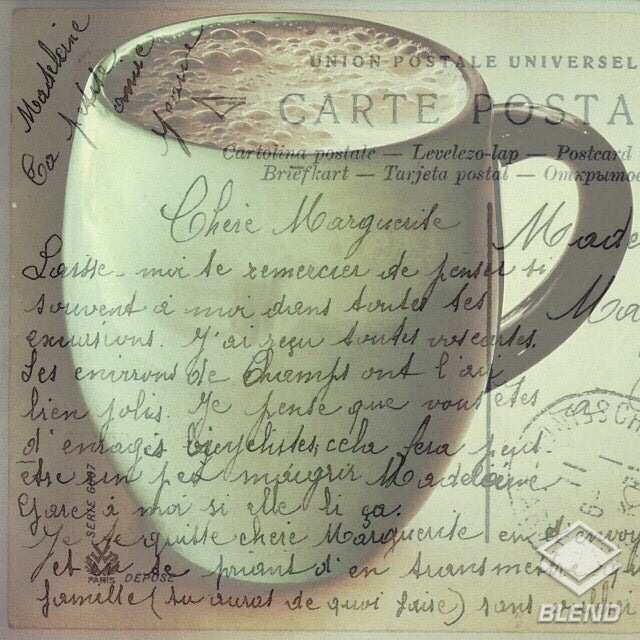 Madeleine
Ta petite amie
Yvonne
UNION POSTALE UNIVERSEL
CARTE POSTA
Cartolina postale — Levelezo-lap — Postcard
Briefkart — Tarjeta postal — Открытое
Chère Marguerite
Made
Ma
Laisse-moi te remercier de penser si
souvent à moi dans toutes tes
excursions. J'ai reçu toutes vos cartes.
Les environs de Champs ont l'air
bien jolis. Je pense que vous êtes
d'enragés bicyclistes, cela fera peut
être un peu maigrir Madeleine
Gare à moi si elle li ça.
Je te quitte chère Marguerite en t'envoy
et te priant d'en transmettre
famille (tu auras de quoi faire) sans
SERIE 607
PARIS
DEPOSE
BLEND